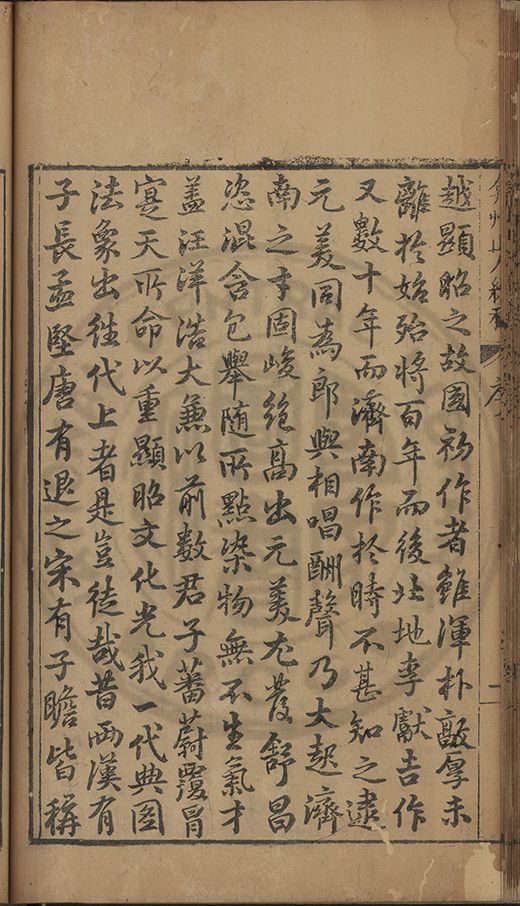 弇州山人續稿 序
越顯昭之故國初作者雖渾朴敵厚未
離於始殆將百年而後北地李獻吉作
又數十年而濟南作於時不甚知之逮
元美同為郎與相唱酬聲乃大起濟
南之才固峻絕高出元美尤發舒昌
恣混含包舉隨所點染物無不生氣才
蓋汪洋浩大兼以前數君子蕃蔚覆冒
寔天所命以重顯昭文化光我一代典圖
法象出往代上者是豈徒哉昔兩漢有
子長孟堅唐有退之宋有子瞻皆稱